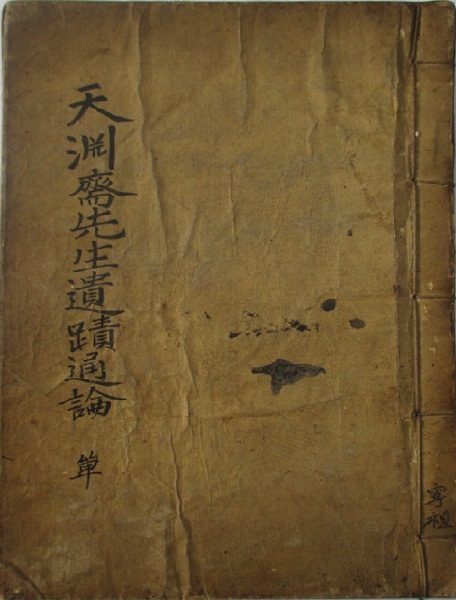 天淵齋先生遺蹟通論 單